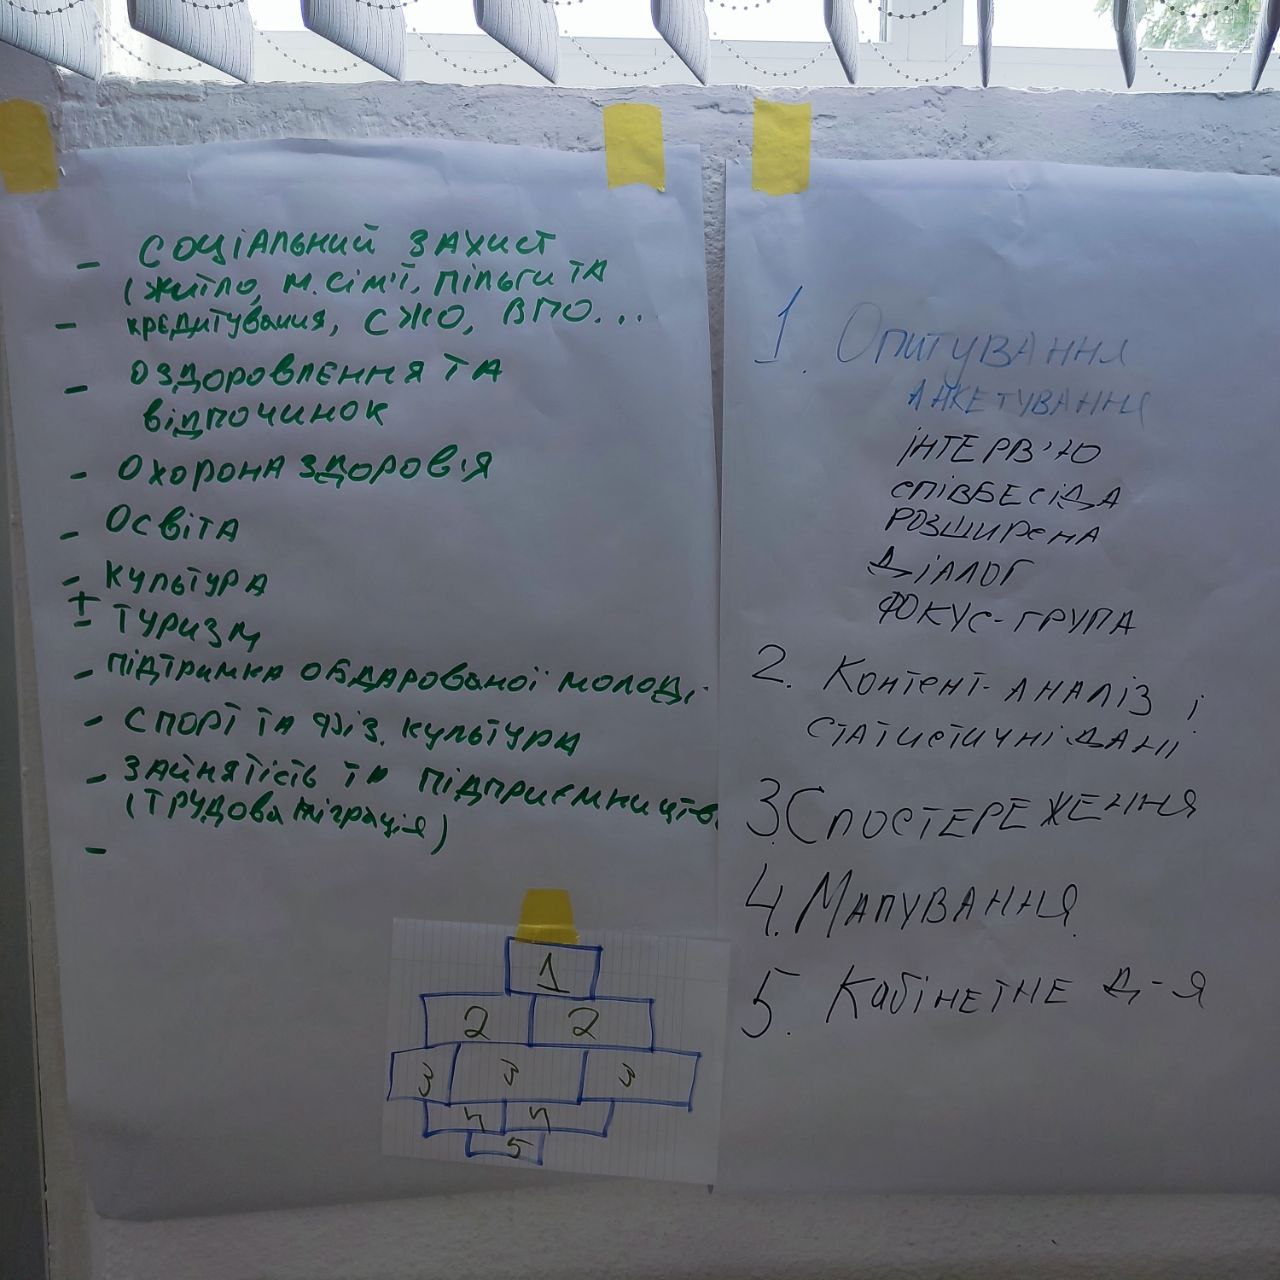 - СОЦІАЛЬНИЙ ЗАХИСТ
(ЖИТЛО, М. СІМ'Ї, ПІЛЬГИ ТА
- КРЕДИТУВАННЯ, СЖО, ВПО...
- ОЗДОРОВЛЕННЯ ТА
ВІДПОЧИНОК
- ОХОРОНА ЗДОРОВ'Я
- ОСВІТА
- КУЛЬТУРА
+
- ТУРИЗМ
- ПІДТРИМКА ОБДАРОВАНОЇ МОЛОДІ
- СПОРТ ТА ФІЗ. КУЛЬТУРА
- ЗАЙНЯТІСТЬ ТА ПІДПРИЄМНИЦТВО
(ТРУДОВА МІГРАЦІЯ)
-
1
2 2
3 3 3
4 4
5
1. ОПИТУВАННЯ
АНКЕТУВАННЯ
ІНТЕРВ'Ю
СПІВБЕСІДА
РОЗШИРЕНА
ДІАЛОГ
ФОКУС-ГРУПА
2. КОНТЕНТ-АНАЛІЗ І
СТАТИСТИЧНІ ДАНІ
3. СПОСТЕРЕЖЕННЯ
4. МАПУВАННЯ
5. КАБІНЕТНЕ Д-Я